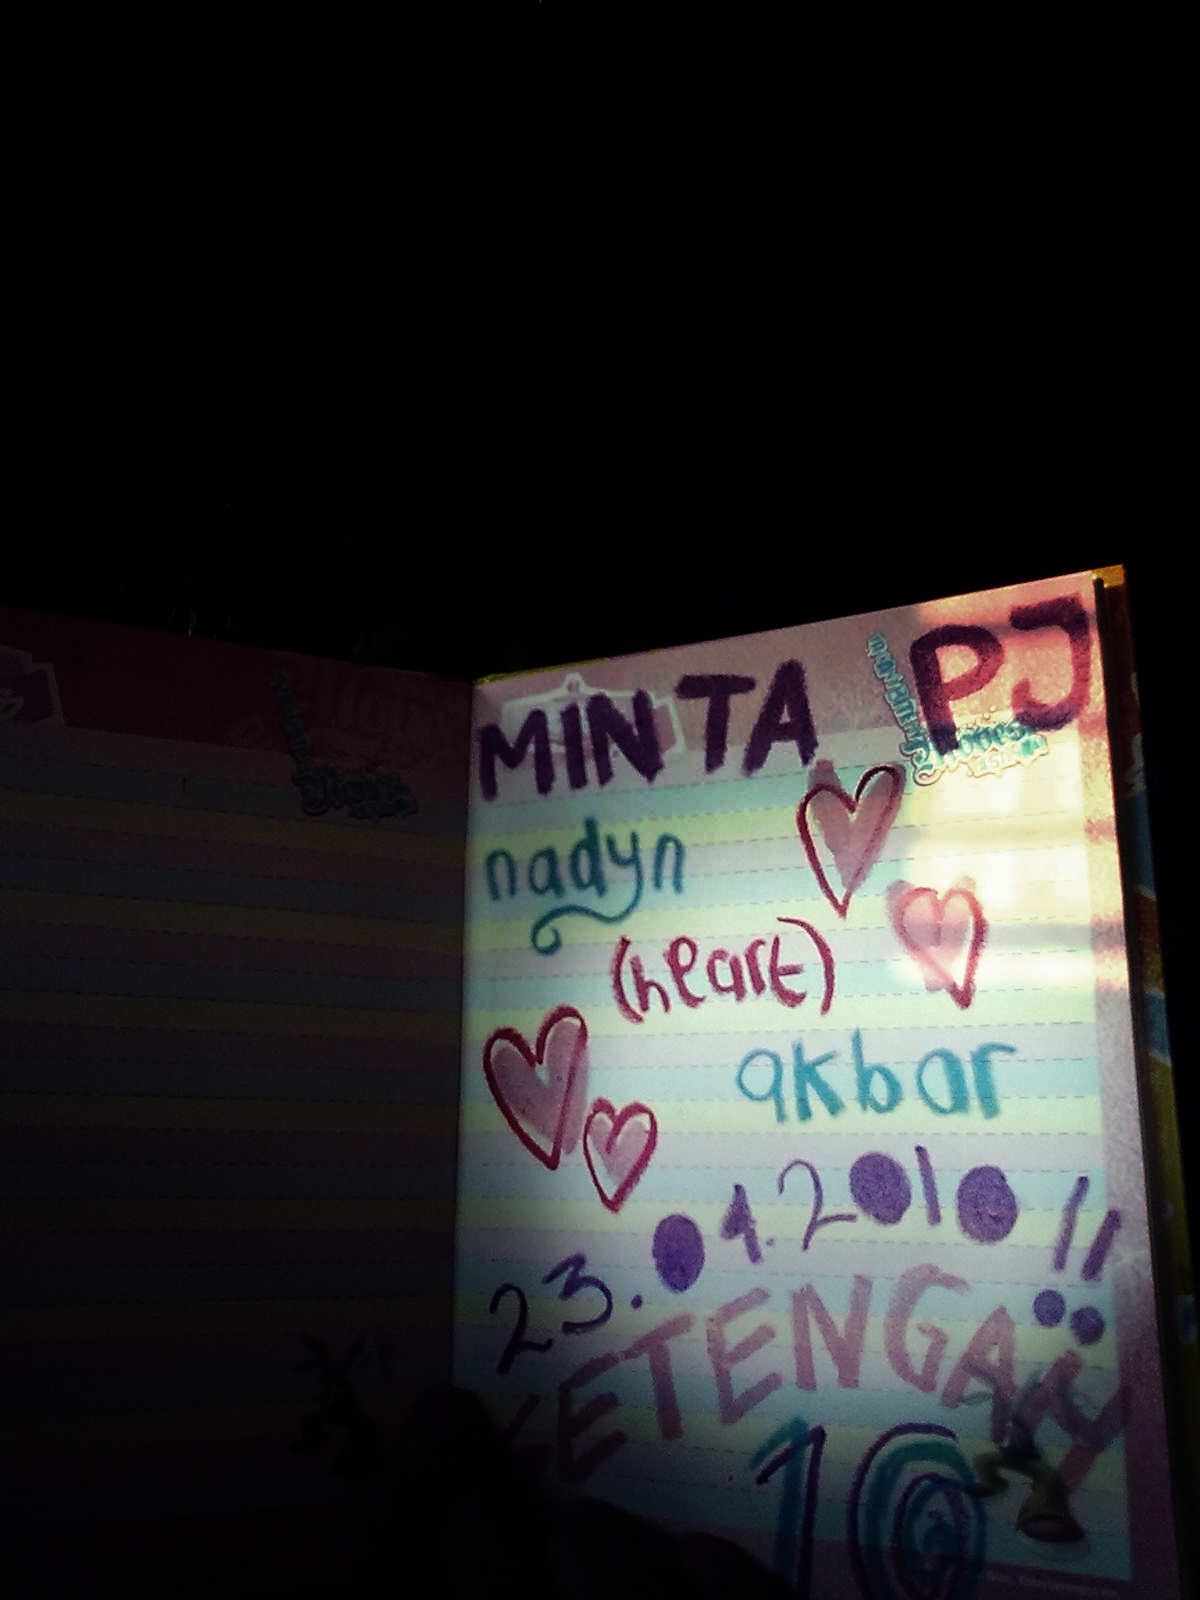 MINTA PJ
nadyn
(heart)
akbar
23.04.2010!!
SETENGAH
10